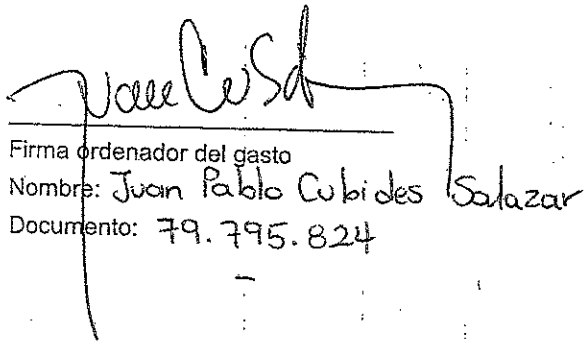 Firma ordenador del gasto
Nombre: Juan Pablo Cubides Salazar
Documento: 79.795.824